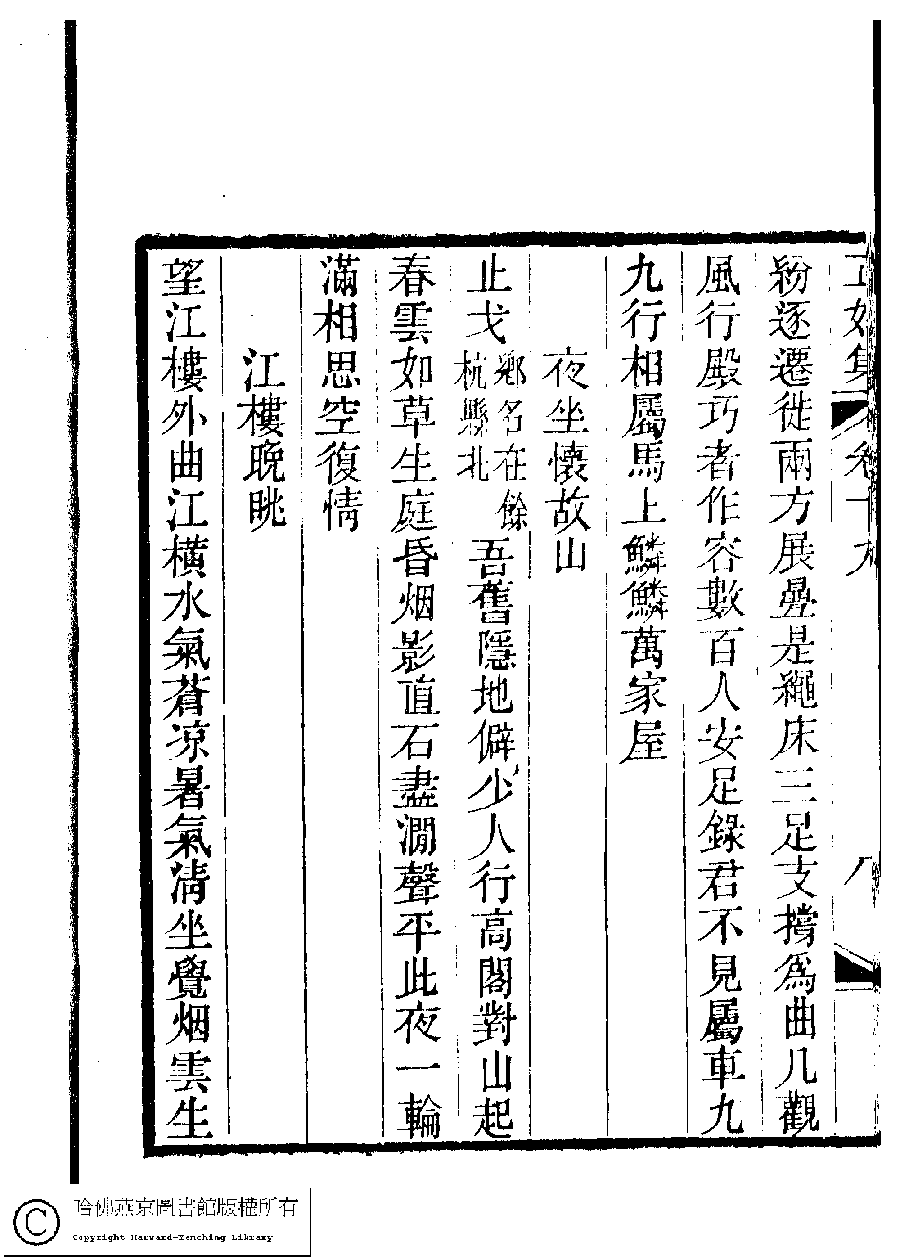 正始集 卷十九 八
粉逐遷徙兩方展疊是繩床三足支撐為曲几觀
風行殿巧者作容數百人安足錄君不見屬車九
九行相屬馬上鱗鱗萬家屋
夜坐懷故山
止戈鄉名在餘杭縣北吾舊隱地僻少人行高閣對山起
春雲如草生庭昏烟影直石盡澗聲平此夜一輪
滿相思空復情
江樓晚眺
望江樓外曲江橫水氣蒼凉暑氣清坐覺烟雲生
哈佛燕京圖書館版權所有
Copyright Harvard-Yenching Library